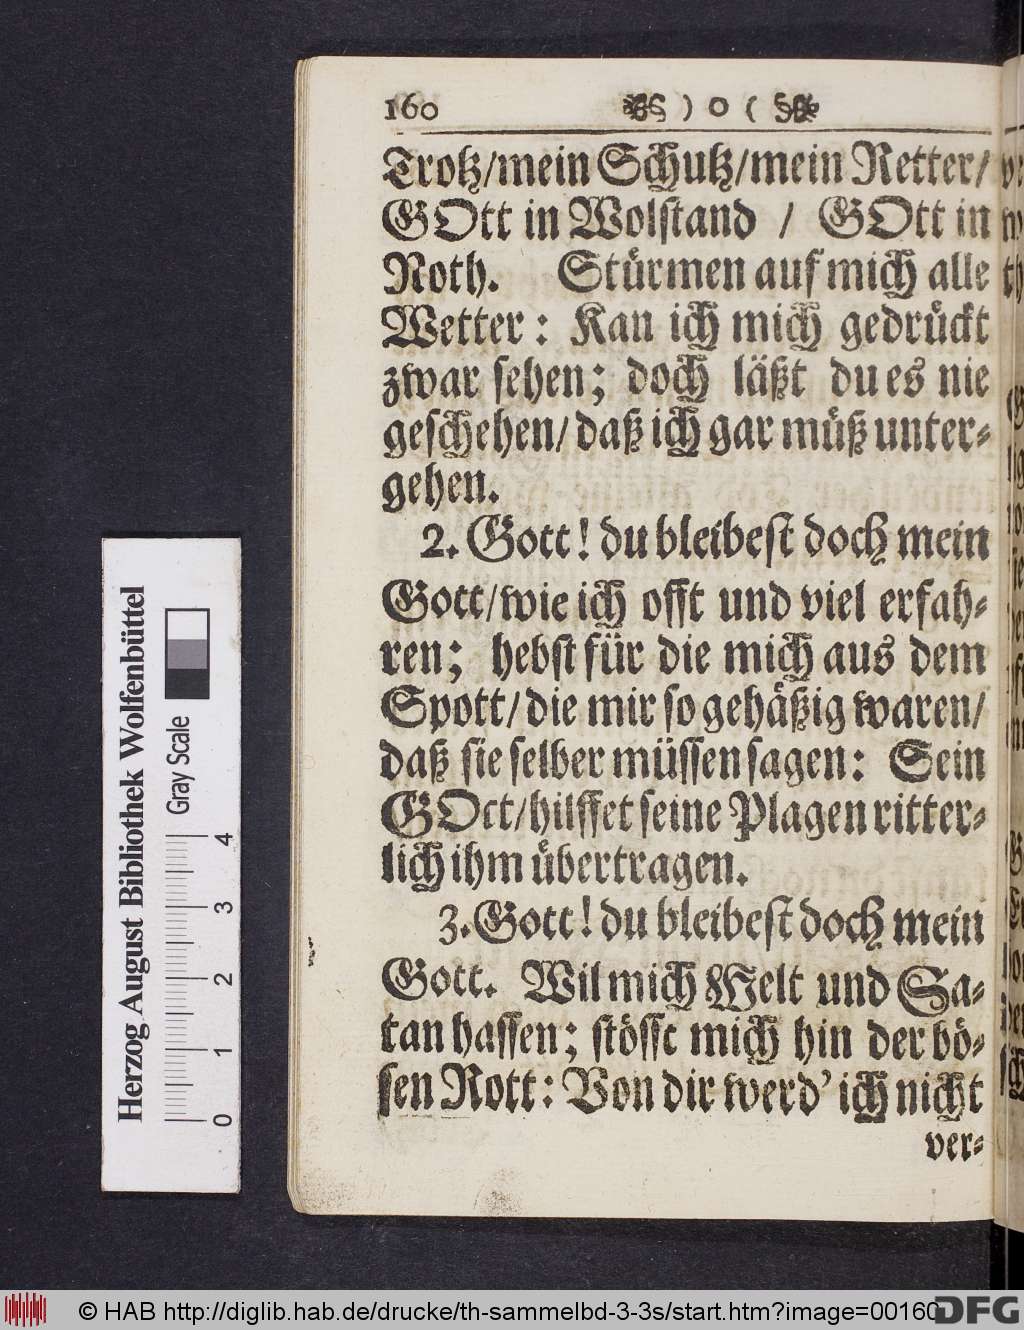 160 ) o (
Trotz/mein Schutz/mein Retter/
GOtt in Wolstand / GOtt in
Noth. Stürmen auf mich alle
Wetter: Kan ich mich gedrückt
zwar sehen; doch läßt du es nie
geschehen/ daß ich gar müß unter-
gehen.
2. Gott! du bleibest doch mein
Gott/wie ich offt und viel erfah-
ren; hebst für die mich aus dem
Spott/ die mir so gehäßig waren/
daß sie selber müssen sagen: Sein
GOtt/hilffet seine Plagen ritter-
lich ihm übertragen.
3. Gott! du bleibest doch mein
Gott. Wil mich Welt und Sa-
tan hassen; stösst mich hin der bö-
sen Rott: Von dir werd' ich nicht
ver-
Herzog August Bibliothek Wolfenbüttel
Gray Scale
0 1 2 3 4
© HAB http://diglib.hab.de/drucke/th-sammelbd-3-3s/start.htm?image=00160
DFG